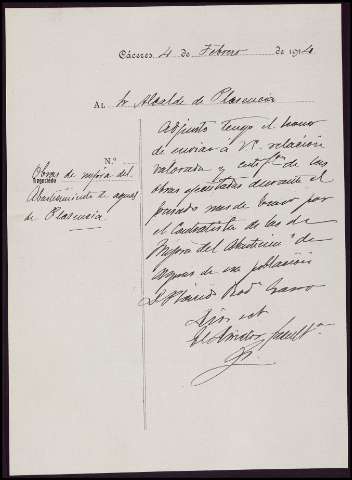 Cáceres 4 de Febrero de 1914
Al Sr Alcalde de Plasencia
N.º
Negociado
Obras de mejora del
Abastecimiento de aguas
de Plasencia
Adjunto tengo el honor
de enviar á V. relación
valorada y de las
obras ejecutadas durante el
pasado mes de Enero por
el Contratista de las de
Mejora del Abastecim.to de
aguas de esa población
D. Plácido
Dios
El